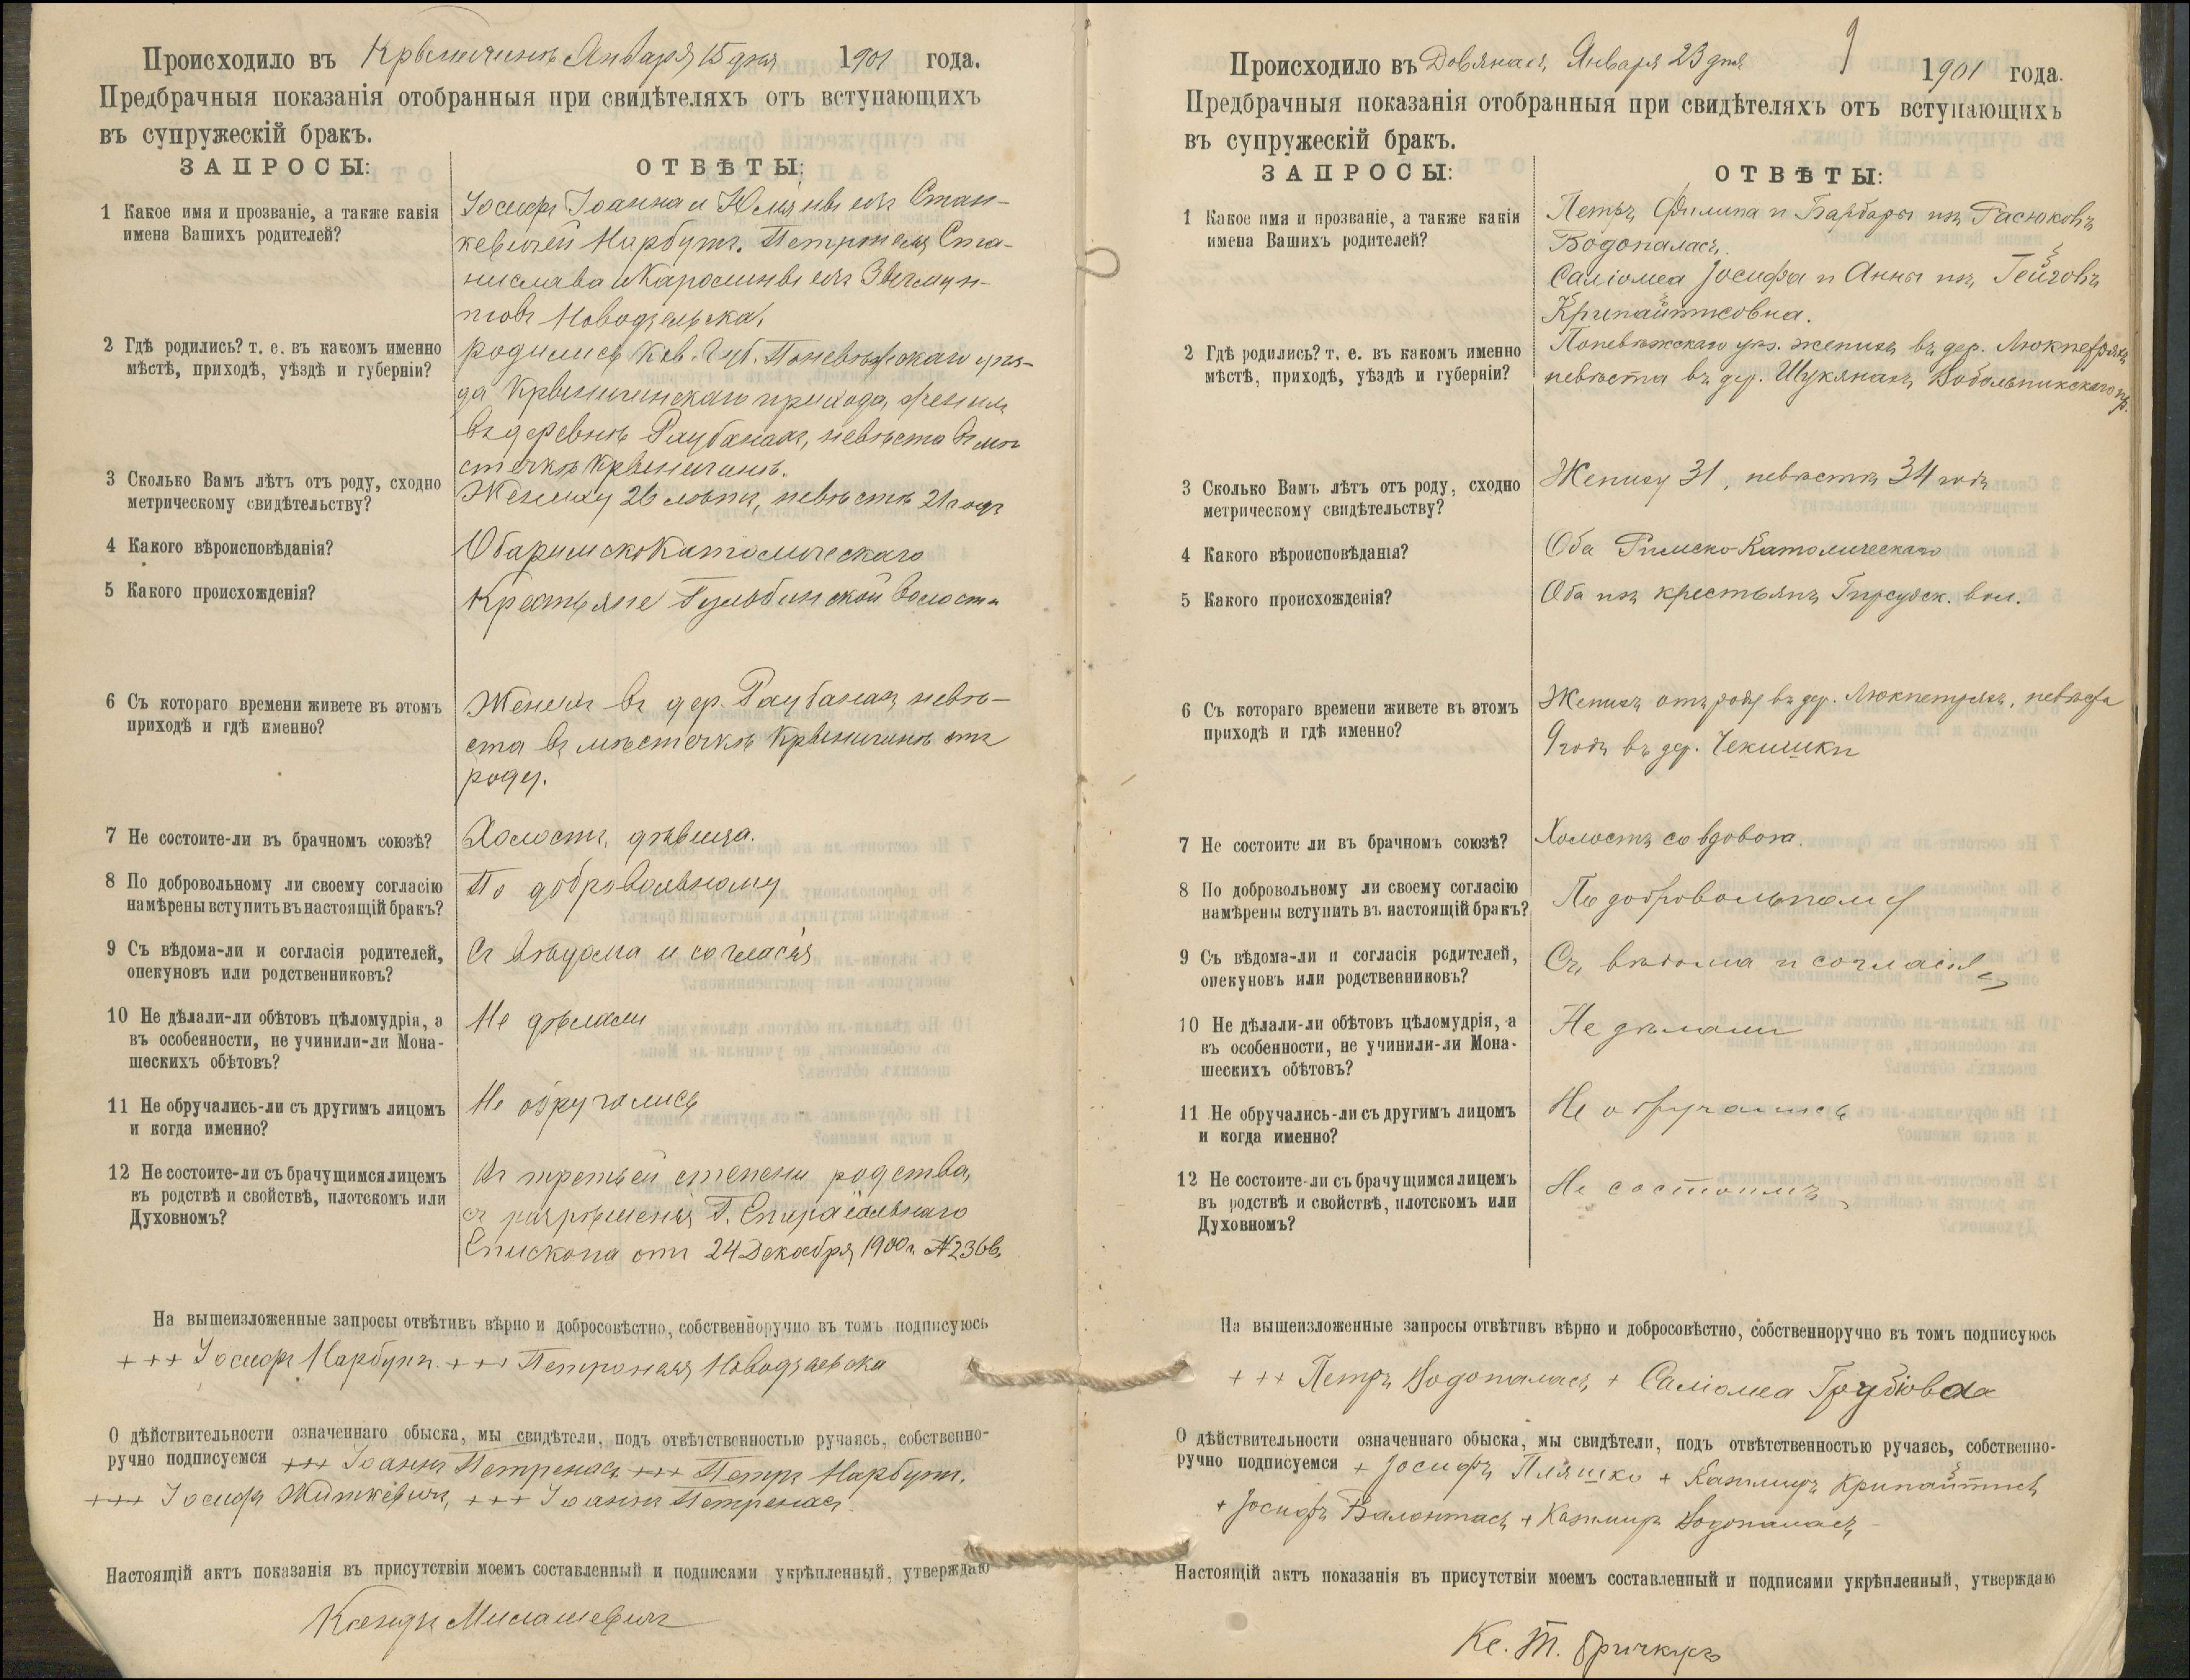 Происходило въ Крвиничинѣ Января 15 дня 1901 года.
Предбрачныя показанія отобранныя при свидѣтеляхъ отъ вступающихъ
въ супружескій бракъ.
ЗАПРОСЫ:
ОТВѢТЫ:
1 Какое имя и прозваніе, а также какія
имена Вашихъ родителей?
Іосифъ Іоанна и Юліяны изъ Стан-
кевичей Нарбутъ. Петронеля Ста-
нислава и Каролины изъ
Новодзельска,
2 Гдѣ родились? т. е. въ какомъ именно
мѣстѣ, приходѣ, уѣздѣ и губерніи?
родились Ков. Губ. Поневѣжскаго уѣз-
да Крвиничинскаго прихода, женихъ
въ деревнѣ Раубанахъ, невѣста въ мѣ
стечкѣ Крвиничинѣ.
3 Сколько Вамъ лѣтъ отъ роду, сходно
метрическому свидѣтельству?
Жениху 26 лѣтъ, невѣстѣ 21 годъ
4 Какого вѣроисповѣданія?
Оба римско Католическаго
5 Какого происхожденія?
Крестьяне Гульбинской волости
6 Съ котораго времени живете въ этомъ
приходѣ и гдѣ именно?
Женихъ въ дер. Раубанахъ невѣ-
ста въ мѣстечкѣ Крвиничинѣ отъ
роду.
7 Не состоите-ли въ брачномъ союзѣ?
Холостъ, дѣвица.
8 По добровольному ли своему согласію
намѣрены вступить въ настоящій бракъ?
По добровольному
9 Съ вѣдома-ли и согласія родителей,
опекуновъ или родственниковъ?
Съ вѣдома и согласія
10 Не дѣлали-ли обѣтовъ цѣломудрія, а
въ особенности, не учинили-ли Мона-
шескихъ обѣтовъ?
Не дѣлали
11 Не обручались-ли съ другимъ лицомъ
и когда именно?
Не обручались
12 Не состоите-ли съ брачущимся лицемъ
въ родствѣ и свойствѣ, плотскомъ или
Духовномъ?
Въ третьей степени родства,
съ разрѣшенія Г. Епархіальнаго
Епископа отъ 24 Декабря 1900 г.
На вышеизложенные запросы отвѣтивъ вѣрно и добросовѣстно, собственноручно въ томъ подписуюсь
+++ Іосифъ Нарбутъ. +++ Петронеля Новодзельска
О дѣйствительности означеннаго обыска, мы свидѣтели, подъ отвѣтственностью ручаясь, собственно-
ручно подписуемся +++ Іоаннъ Петренасъ +++ Петръ Нарбутъ,
+++ Іосифъ Житкевичъ, +++ Іоаннъ Петренасъ.
Настоящій актъ показанія въ присутствіи моемъ составленный и подписями укрѣпленный, утверждаю
Ксендзъ Милашевичъ
9
Происходило въ Довянахъ, Января 23 дня 1901 года.
Предбрачныя показанія отобранныя при свидѣтеляхъ отъ вступающихъ
въ супружескій бракъ.
ЗАПРОСЫ:
ОТВѢТЫ:
1 Какое имя и прозваніе, а также какія
имена Вашихъ родителей?
Петръ Филипа и Барбары изъ Расюковъ
Водопаласъ,
Саліомеа Іосифа и Анны изъ Гейговъ
Крипайтисовна.
2 Гдѣ родились? т. е. въ какомъ именно
мѣстѣ, приходѣ, уѣздѣ и губерніи?
Поневѣжскаго уѣз. женихъ въ дер. Люкпетряхъ
невѣста въ дер. Шукянахъ, Вобольникскаго пр.
3 Сколько Вамъ лѣтъ отъ роду, сходно
метрическому свидѣтельству?
Жениху 31, невѣстѣ 34 года
4 Какого вѣроисповѣданія?
Оба Римско-Католическаго
5 Какого происхожденія?
Оба изъ крестьянъ Гирсудск. вол.
6 Съ котораго времени живете въ этомъ
приходѣ и гдѣ именно?
Женихъ отъ роду въ дер. Люкпетряхъ, невѣста
9 годъ въ дер. Чекишки
7 Не состоите ли въ брачномъ союзѣ?
Холостъ со вдовою.
8 По добровольному ли своему согласію
намѣрены вступить въ настоящій бракъ?
По добровольному
9 Съ вѣдома-ли и согласія родителей,
опекуновъ или родственниковъ?
Съ вѣдома и согласія
10 Не дѣлали-ли обѣтовъ цѣломудрія, а
въ особенности, не учинили-ли Мона-
шескихъ обѣтовъ?
Не дѣлали
11 Не обручались-ли съ другимъ лицомъ
и когда именно?
Не обручались
12 Не состоите-ли съ брачущимся лицемъ
въ родствѣ и свойствѣ, плотскомъ или
Духовномъ?
Не состоимъ
На вышеизложенные запросы отвѣтивъ вѣрно и добросовѣстно, собственноручно въ томъ подписуюсь
+++ Петръ Водопаласъ, + Саліомеа Грубювна
О дѣйствительности означеннаго обыска, мы свидѣтели, подъ отвѣтственностью ручаясь, собственно-
ручно подписуемся + Іосифъ Пляшко + Казимиръ Крипайтисъ
+ Іосифъ Валонтасъ + Казимиръ Водопаласъ
Настоящій актъ показанія въ присутствіи моемъ составленный и подписями укрѣпленный, утверждаю
Кс. Т. Бричкусъ